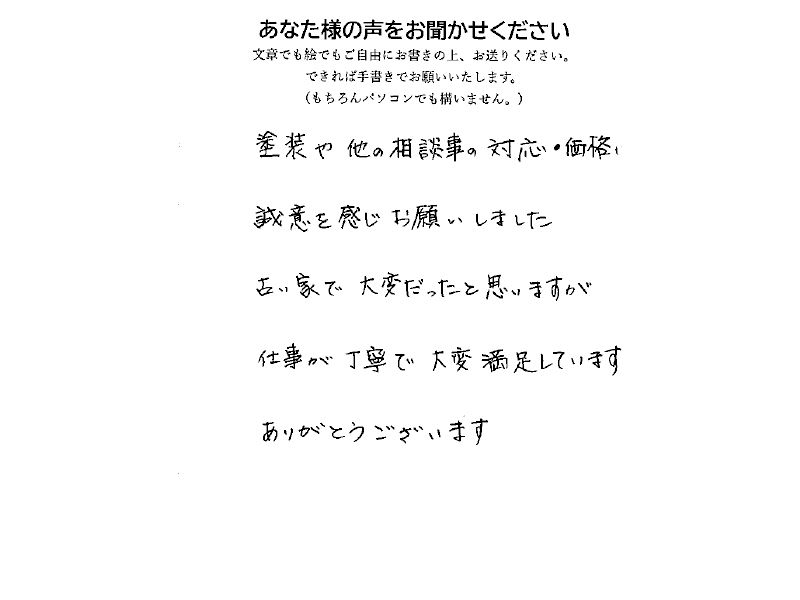 あなた様の声をお聞かせください
文章でも絵でもご自由にお書きの上、お送りください。
できれば手書きでお願いいたします。
（もちろんパソコンでも構いません。）
塗装や他の相談事の対応・価格に
誠意を感じお願いしました
古い家で大変だったと思いますが
仕事が丁寧で大変満足しています
ありがとうございます